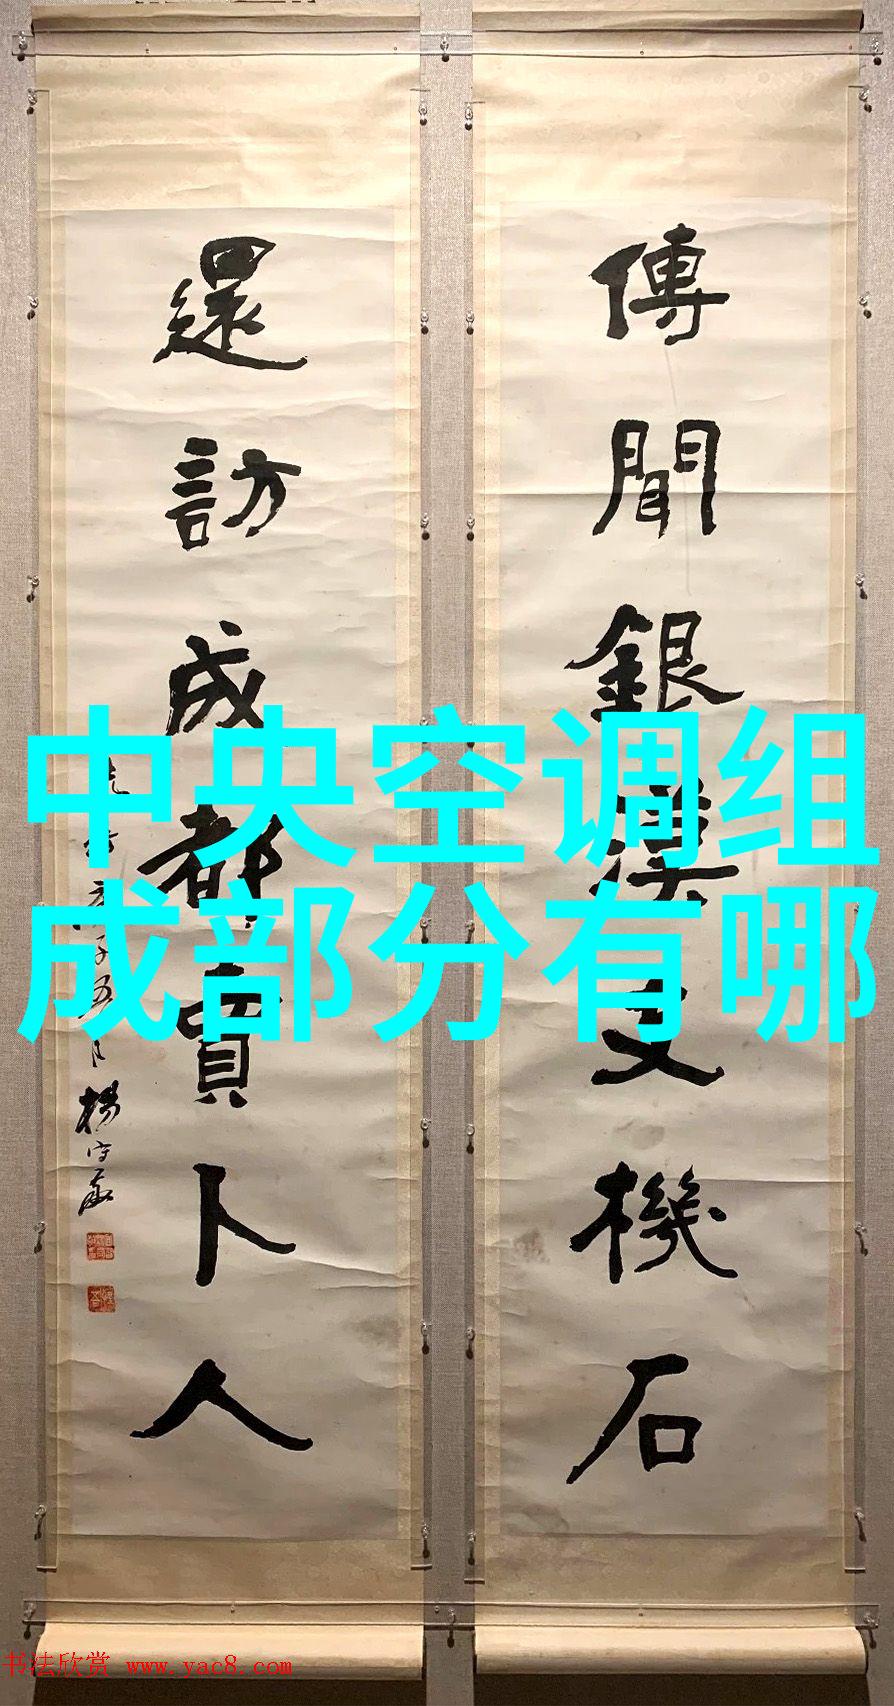 傳聞銀漢支機石
還訪成都賣卜人
五月楊守敬
中央空调组
成部分有哪
书法欣赏 www.yac8.com